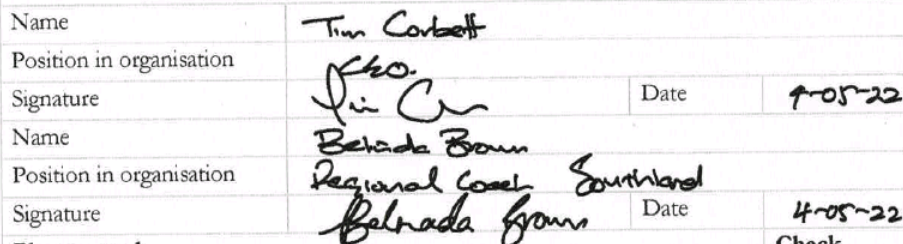 Name Tim Corbett
Position in organisation CEO.
Signature Tim C Date 4-05-22
Name Belinda Brown
Position in organisation Regional Coach Southland
Signature Belinda Brown Date 4-05-22
Check